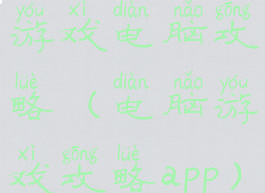 yóu xì diàn nǎo gōng
游戏电脑攻
lüè diàn nǎo yóu
略（电脑游
xì gōng lüè
戏攻略app）